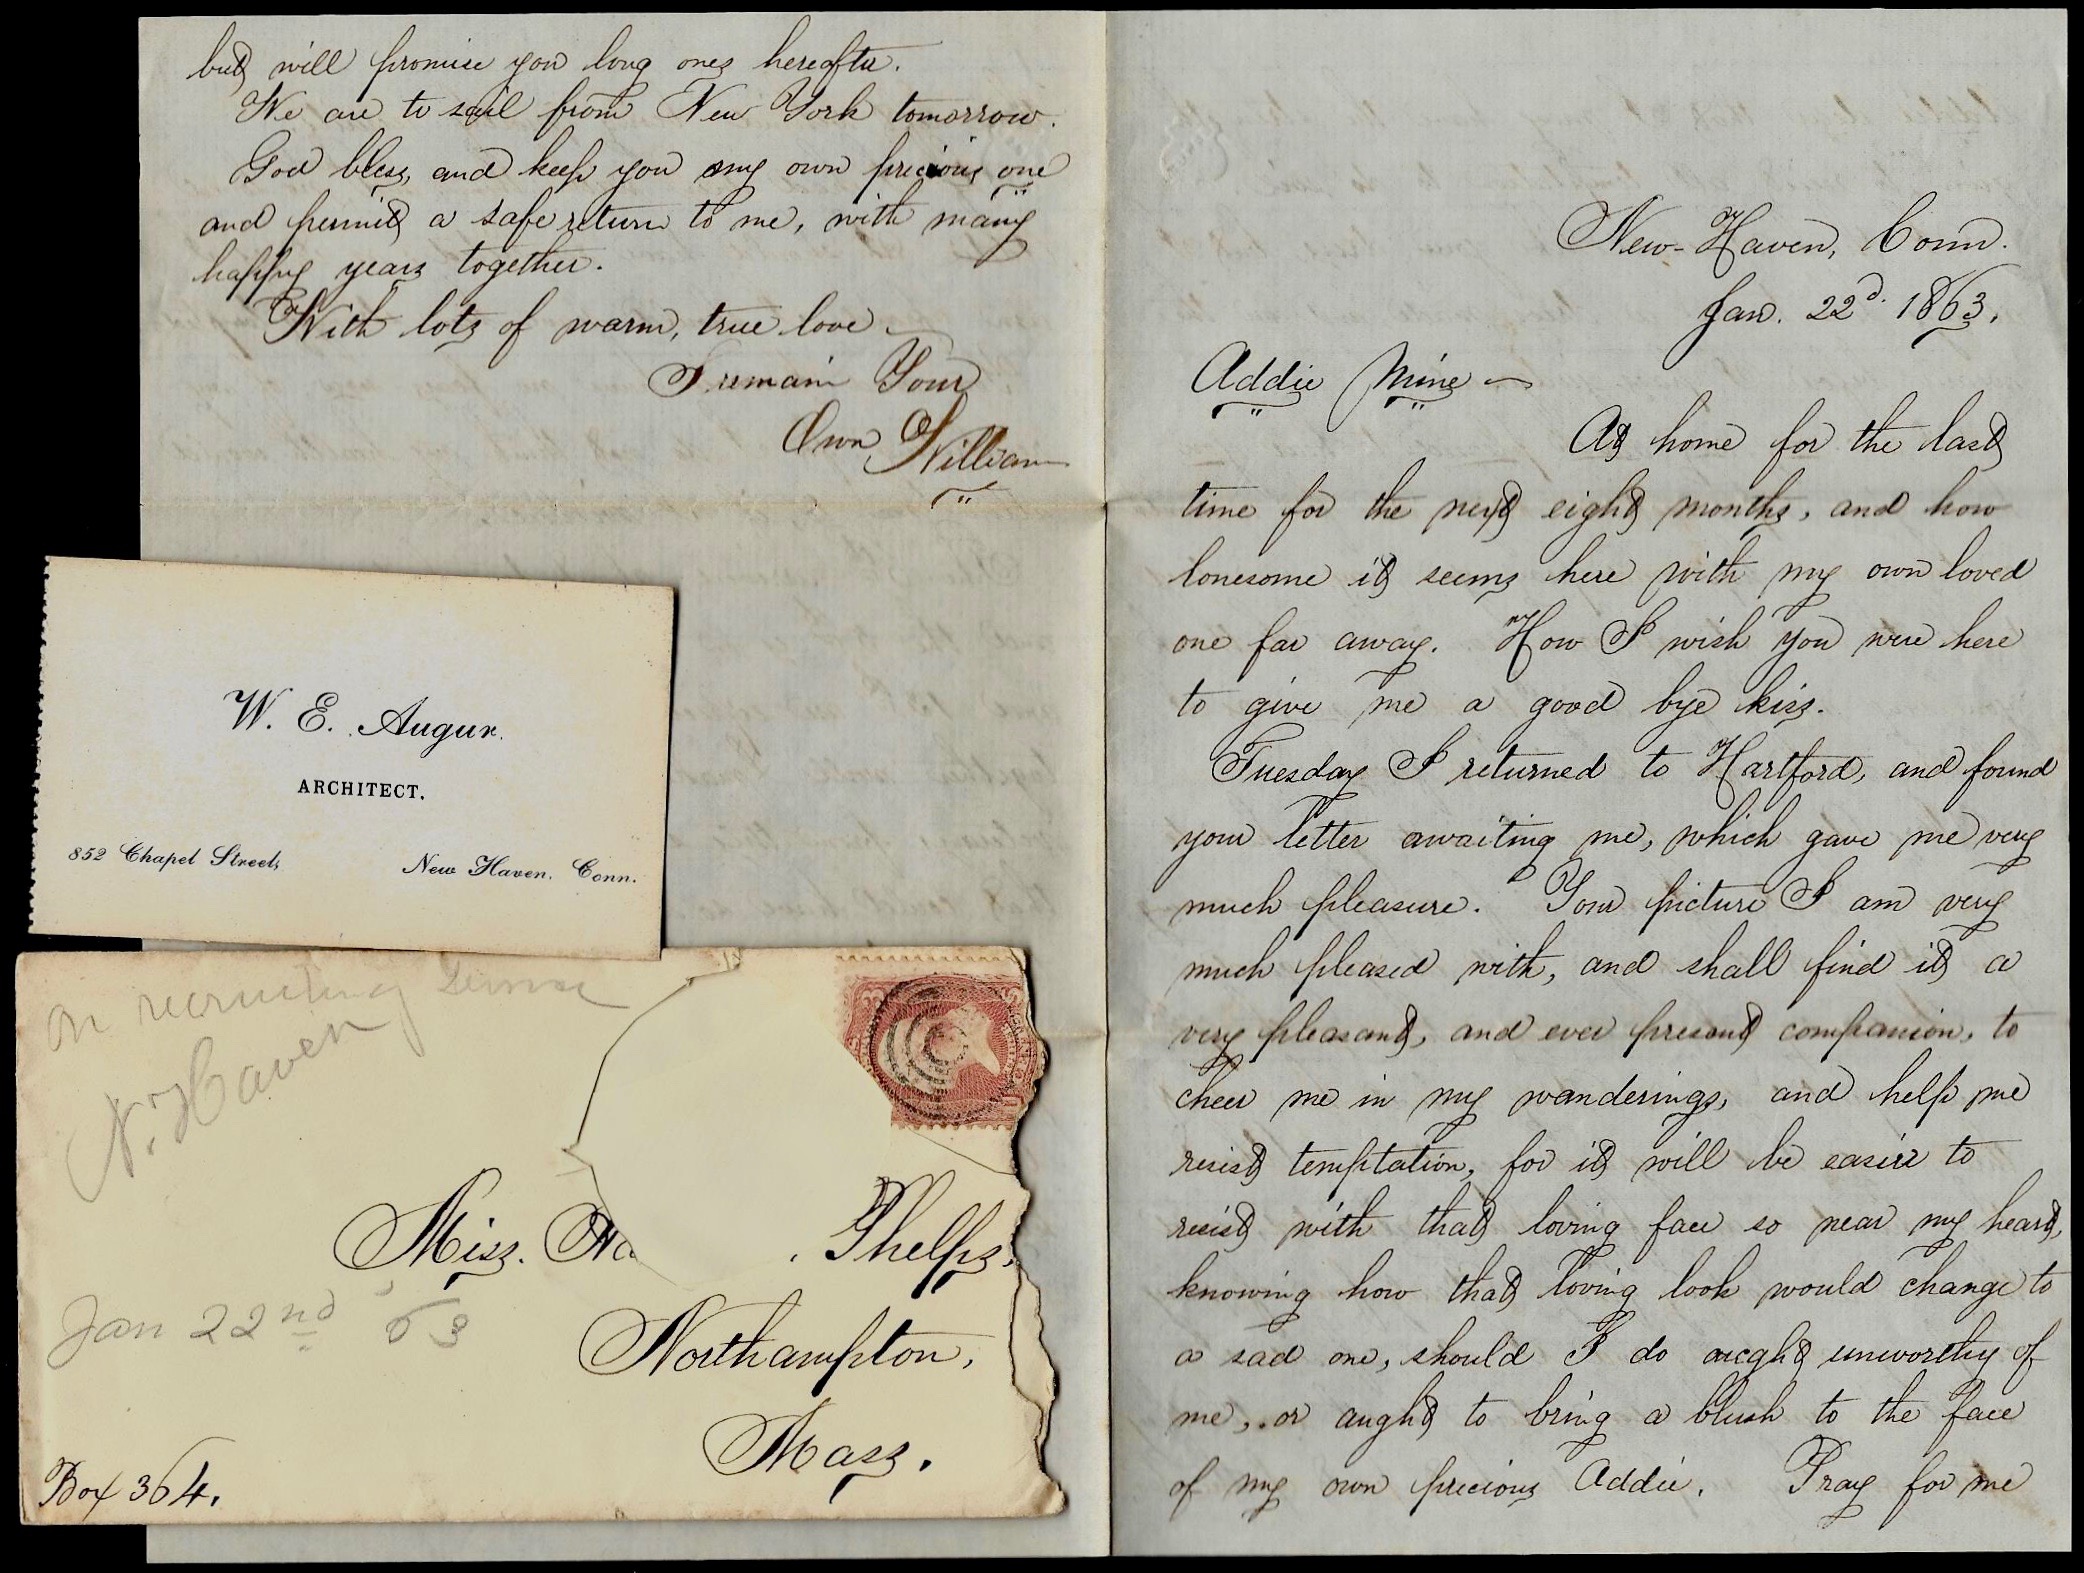 New-Haven, Conn.
Jan. 22d. 1863.
Addie Mine
At home for the last
time for the next eight months, and how
lonesome it seems here with my own loved
one far away. How I wish you were here
to give me a good bye kiss.
Tuesday I returned to Hartford, and found
your letter awaiting me, which gave me very
much pleasure. Your picture I am very
much pleased with, and shall find it a
very pleasant, and ever present companion, to
cheer me in my wanderings, and help me
resist temptation, for it will be easier to
resist with that loving face so near my heart,
knowing how that loving look would change to
a sad one, should I do aught unworthy of
me, or aught to bring a blush to the face
of my own precious Addie. Pray for me
but will promise you long ones hereafter.
We are to sail from New York tomorrow.
God bless, and keep you my own precious one
and permit a safe return to me, with many
happy years together.
With lots of warm, true love
I remain Your
Own William
W. E. Augur.
ARCHITECT.
852 Chapel Street, New Haven, Conn.
On recruiting
N. Haven
Miss. Phelps,
Jan 22nd 63
Northampton,
Mass.
Box 364.